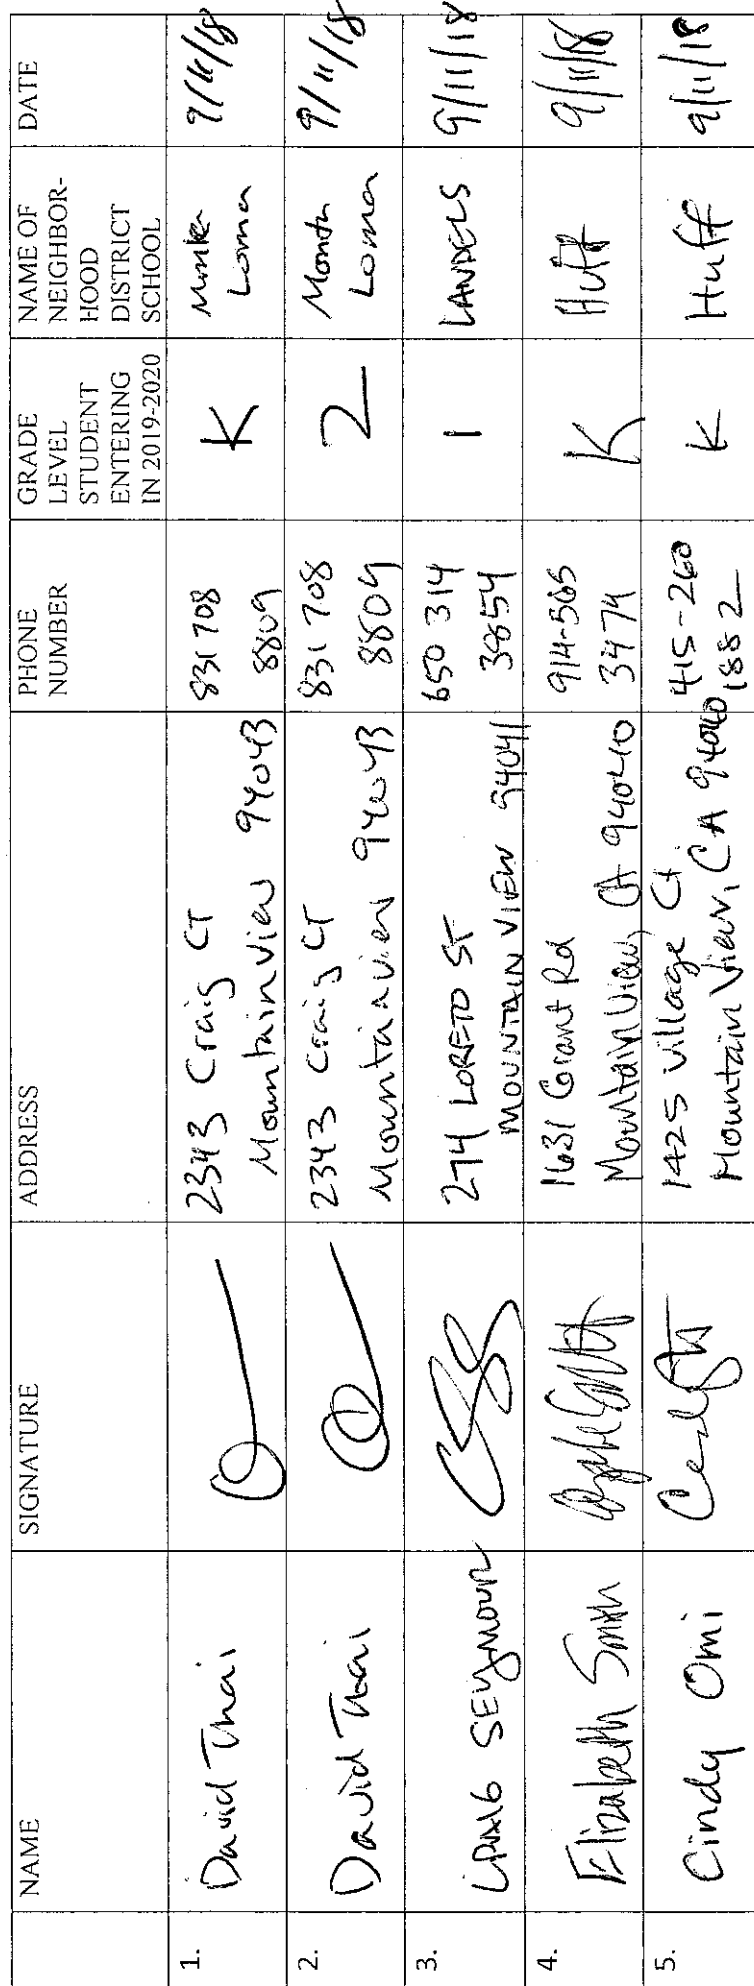 NAME
SIGNATURE
ADDRESS
PHONE
NUMBER
GRADE
LEVEL
STUDENT
ENTERING
IN 2019-2020
NAME OF
NEIGHBOR-
HOOD
DISTRICT
SCHOOL
DATE
1.
David Thai
2343 Craig CT
Mountain View 94043
831 708
8809
K
Loma
9/11/18
2.
David Thai
2343 Craig CT
Mountain View 94043
831 708
8809
2
Monta
Loma
9/11/18
3.
SEYMOUR
274 LORETO ST
MOUNTAIN VIEW 94041
650 314
38654
1
LANDELS
9/11/18
4.
Elizabeth Smith
1631 Grant Rd
Mountain View, CA 94040
914-565
3474
K
Huff
9/11/18
5.
Cindy Omi
1425 Village Ct
Mountain View, CA 94040
415-260
1882
K
Huff
9/11/18